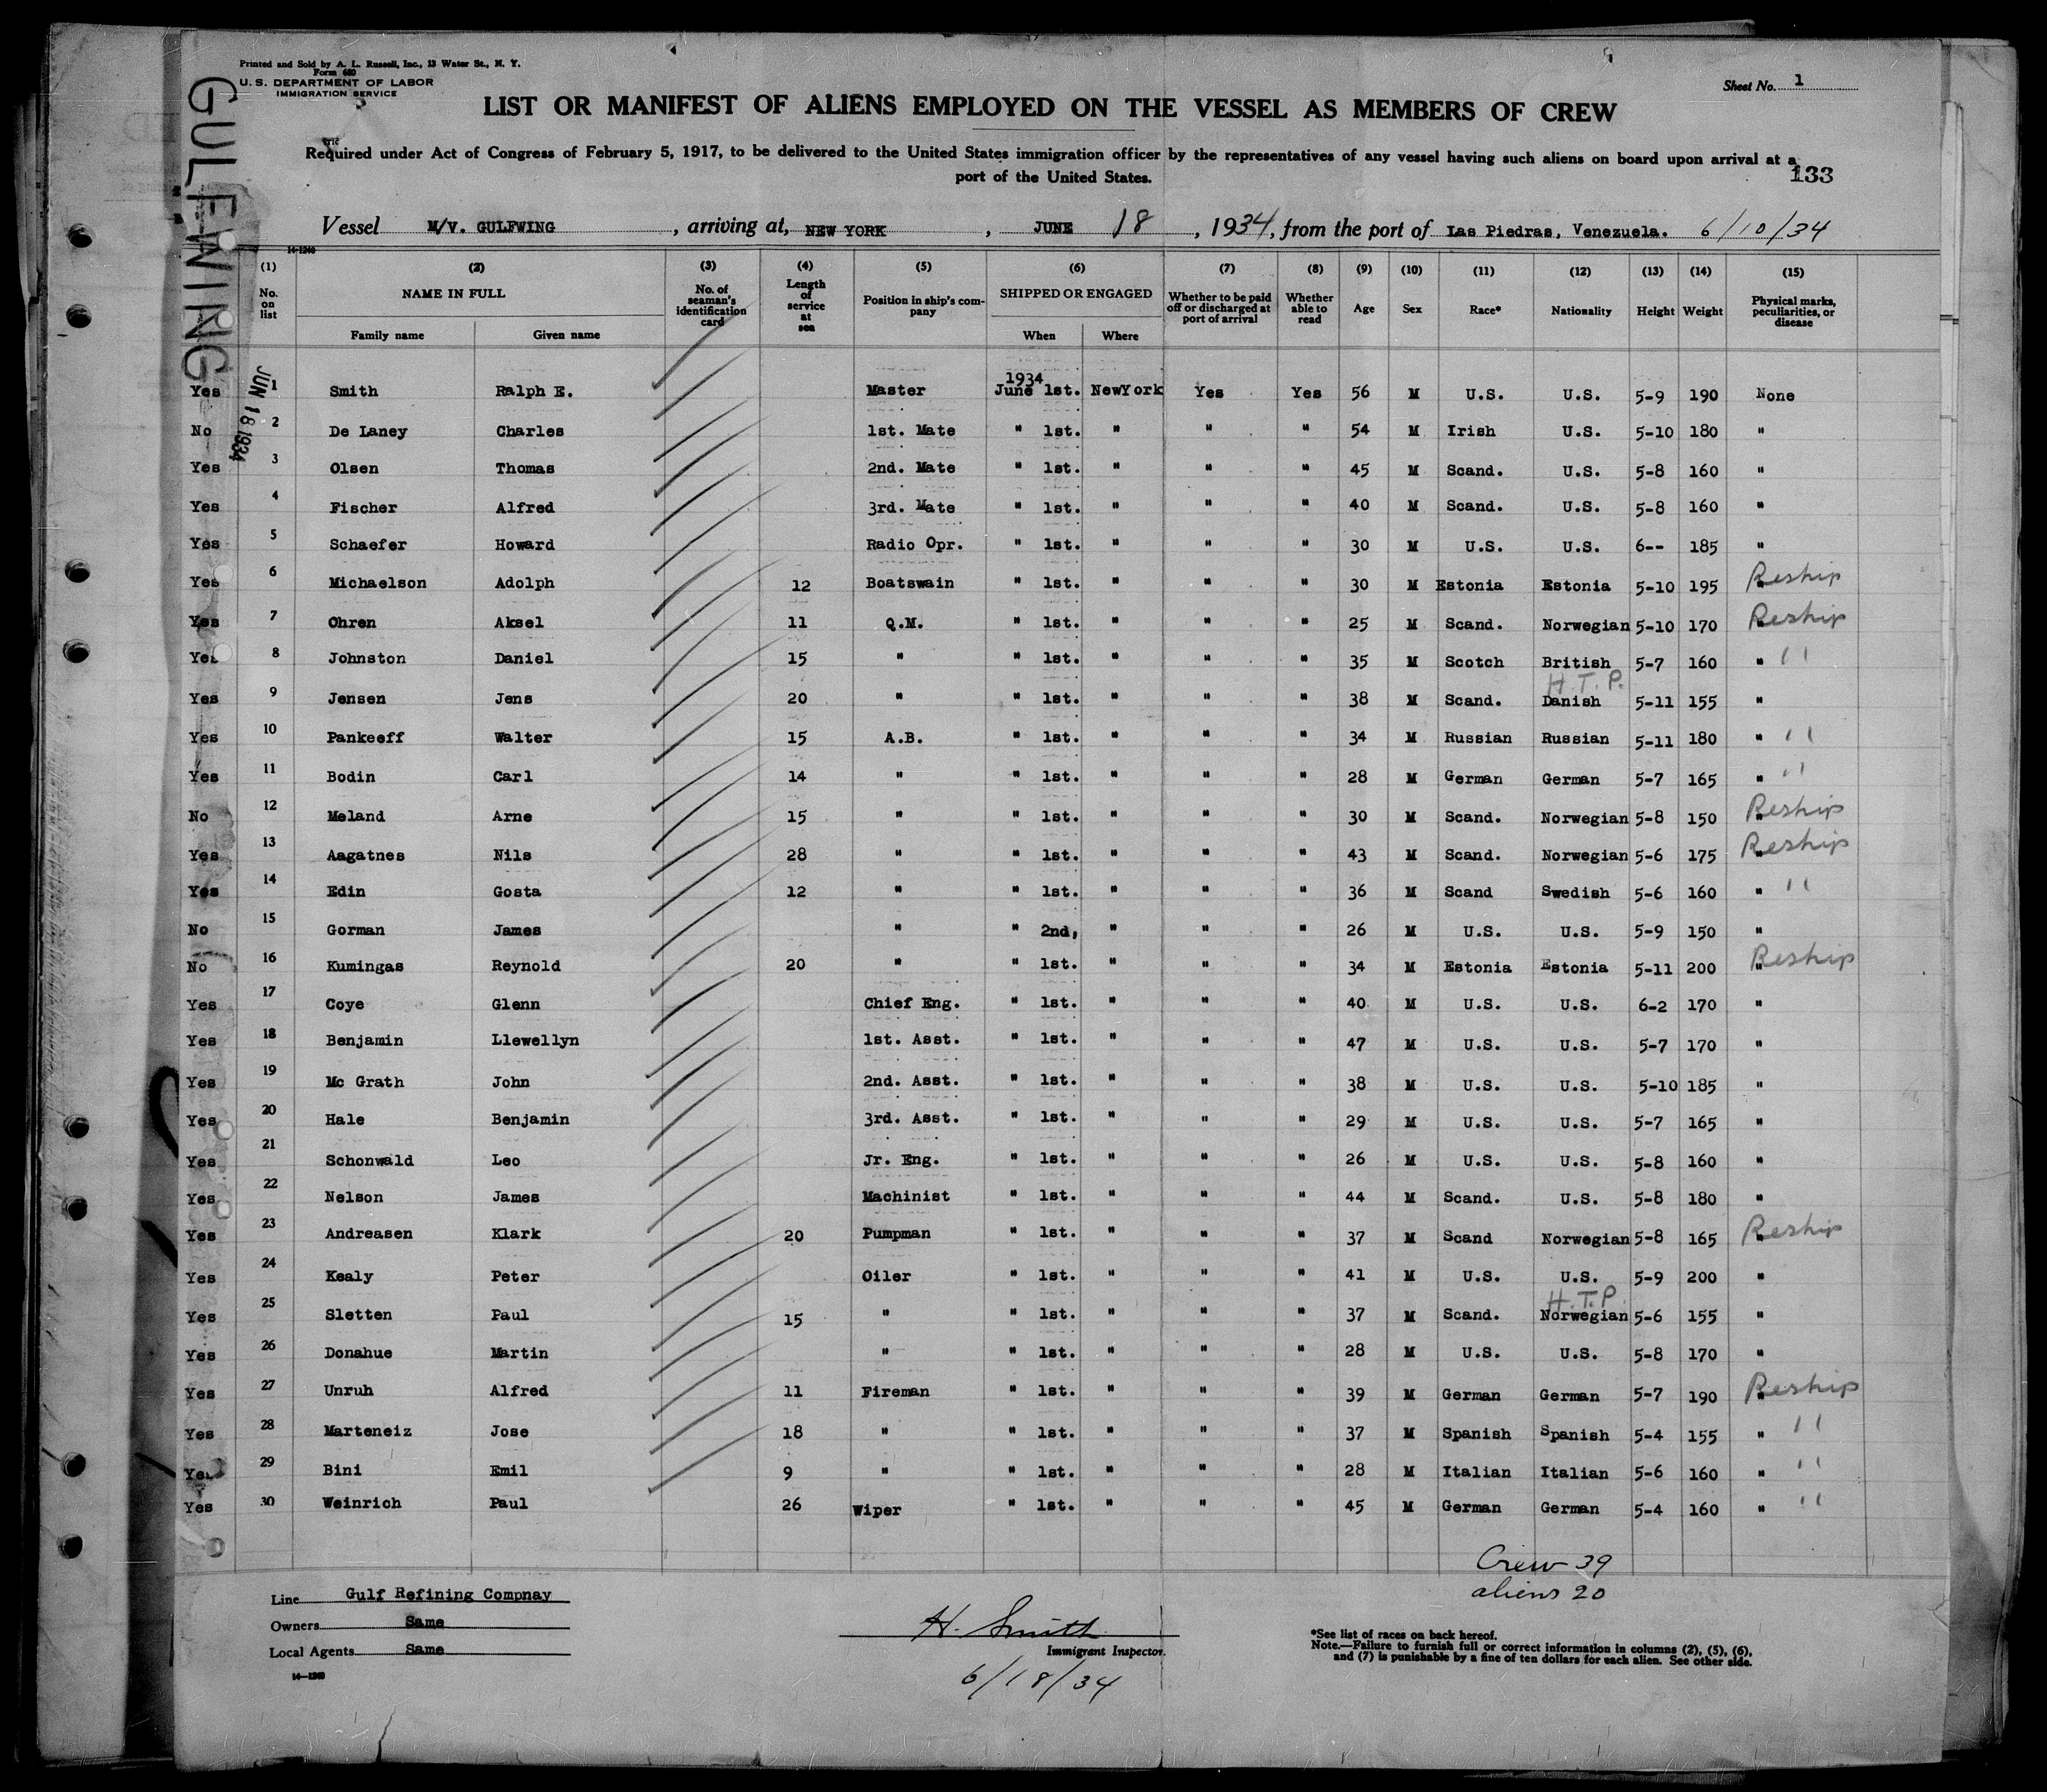 Printed and Sold by A. L. Russell, Inc., 13 Water St., N. Y.
Form 680
U. S. DEPARTMENT OF LABOR
IMMIGRATION SERVICE
Sheet No. 1
GULFWING
JUN 18 1934
LIST OR MANIFEST OF ALIENS EMPLOYED ON THE VESSEL AS MEMBERS OF CREW
Required under Act of Congress of February 5, 1917, to be delivered to the United States immigration officer by the representatives of any vessel having such aliens on board upon arrival at a
port of the United States.
133
Vessel M/V. GULFWING, arriving at, NEW YORK, JUNE 18, 1934, from the port of Las Piedras, Venezuela. 6/10/34
14-1240
(1) (2) (3) (4) (5) (6) (7) (8) (9) (10) (11) (12) (13) (14) (15)
No. on list NAME IN FULL No. of seaman's identification card Length of service at sea Position in ship's company SHIPPED OR ENGAGED Whether to be paid off or discharged at port of arrival Whether able to read Age Sex Race* Nationality Height Weight Physical marks, peculiarities, or disease
Family name Given name When Where
1934
Yes 1 Smith Ralph E. Master June 1st. NewYork Yes Yes 56 M U.S. U.S. 5-9 190 None
No 2 De Laney Charles 1st. Mate " 1st. " " " 54 M Irish U.S. 5-10 180 "
Yes 3 Olsen Thomas 2nd. Mate " 1st. " " " 45 M Scand. U.S. 5-8 160 "
Yes 4 Fischer Alfred 3rd. Mate " 1st. " " " 40 M Scand. U.S. 5-8 160 "
Yes 5 Schaefer Howard Radio Opr. " 1st. " " " 30 M U.S. U.S. 6-- 185 "
Yes 6 Michaelson Adolph 12 Boatswain " 1st. " " " 30 M Estonia Estonia 5-10 195 " Reship
Yes 7 Ohren Aksel 11 Q.M. " 1st. " " " 25 M Scand. Norwegian 5-10 170 " Reship
Yes 8 Johnston Daniel 15 " " 1st. " " " 35 M Scotch British 5-7 160 " "
H.T.P.
Yes 9 Jensen Jens 20 " " 1st. " " " 38 M Scand. Danish 5-11 155 "
Yes 10 Pankeeff Walter 15 A.B. " 1st. " " " 34 M Russian Russian 5-11 180 " "
Yes 11 Bodin Carl 14 " " 1st. " " " 28 M German German 5-7 165 " "
No 12 Meland Arne 15 " " 1st. " " " 30 M Scand. Norwegian 5-8 150 " Reship
Yes 13 Aagatnes Nils 28 " " 1st. " " " 43 M Scand. Norwegian 5-6 175 " Reship
Yes 14 Edin Gosta 12 " " 1st. " " " 36 M Scand Swedish 5-6 160 " "
No 15 Gorman James " " 2nd, " " " 26 M U.S. U.S. 5-9 150 "
No 16 Kumingas Reynold 20 " " 1st. " " " 34 M Estonia Estonia 5-11 200 " Reship
Yes 17 Coye Glenn Chief Eng. " 1st. " " " 40 M U.S. U.S. 6-2 170 "
Yes 18 Benjamin Llewellyn 1st. Asst. " 1st. " " " 47 M U.S. U.S. 5-7 170 "
Yes 19 Mc Grath John 2nd. Asst. " 1st. " " " 38 M U.S. U.S. 5-10 185 "
Yes 20 Hale Benjamin 3rd. Asst. " 1st. " " " 29 M U.S. U.S. 5-7 165 "
Yes 21 Schonwald Leo Jr. Eng. " 1st. " " " 26 M U.S. U.S. 5-8 160 "
Yes 22 Nelson James Machinist " 1st. " " " 44 M Scand. U.S. 5-8 180 "
Yes 23 Andreasen Klark 20 Pumpman " 1st. " " " 37 M Scand Norwegian 5-8 165 " Reship
Yes 24 Kealy Peter Oiler " 1st. " " " 41 M U.S. U.S. 5-9 200 "
H.T.P.
Yes 25 Sletten Paul 15 " " 1st. " " " 37 M Scand. Norwegian 5-6 155 "
Yes 26 Donahue Martin " " 1st. " " " 28 M U.S. U.S. 5-8 170 "
Yes 27 Unruh Alfred 11 Fireman " 1st. " " " 39 M German German 5-7 190 " Reship
Yes 28 Marteneiz Jose 18 " " 1st. " " " 37 M Spanish Spanish 5-4 155 " "
Yes 29 Bini Emil 9 " " 1st. " " " 28 M Italian Italian 5-6 160 " "
Yes 30 Weinrich Paul 26 Wiper " 1st. " " " 45 M German German 5-4 160 " "
Crew 39
aliens 20
Line Gulf Refining Compnay
Owners Same
Local Agents Same
14-1240
H. Smith
Immigrant Inspector.
6/18/34
*See list of races on back hereof.
Note.—Failure to furnish full or correct information in columns (2), (5), (6),
and (7) is punishable by a fine of ten dollars for each alien. See other side.